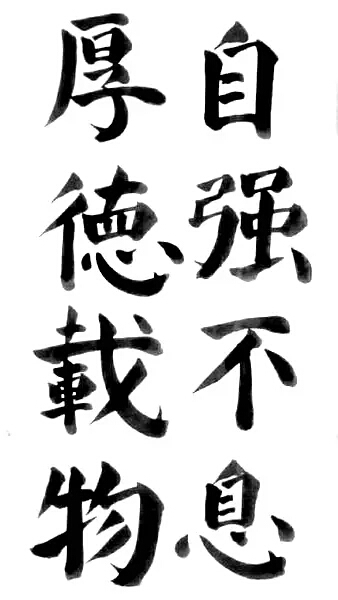 自强不息
厚德載物